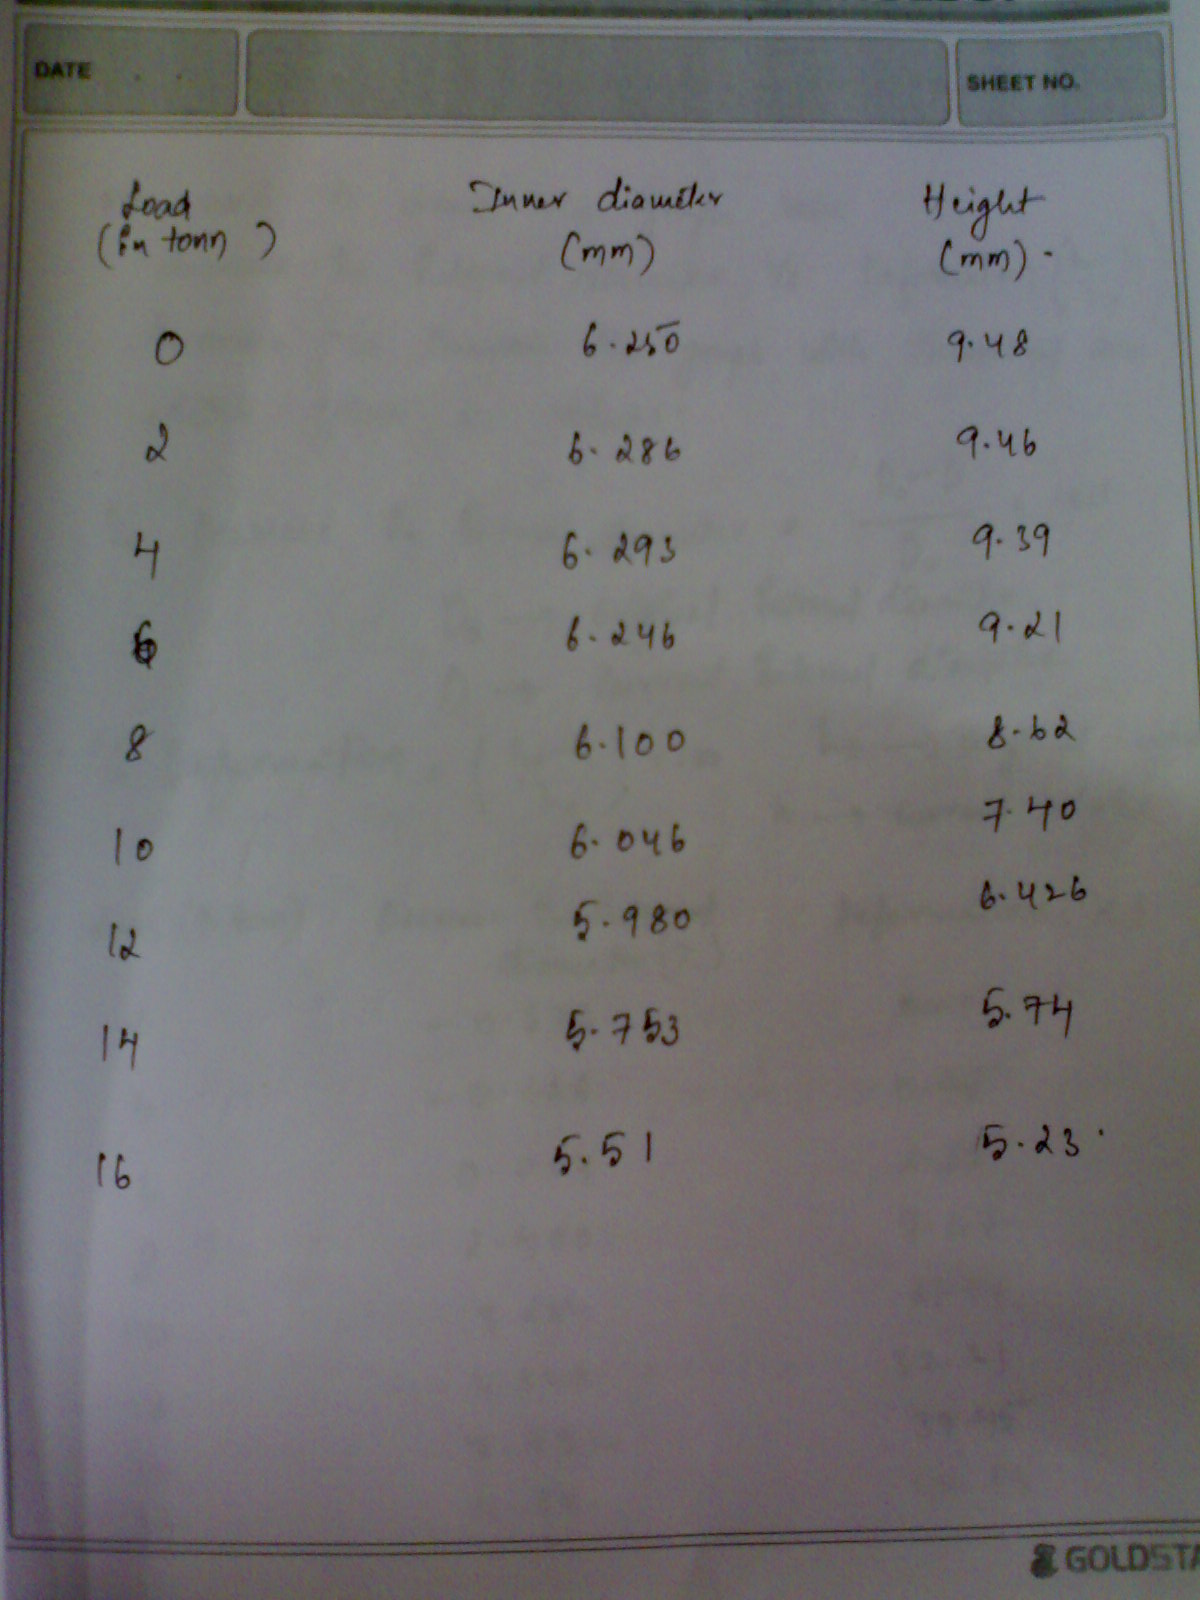 DATE SHEET NO.
Load Inner diameter Height
(in tonn ) (mm) (mm)
0 6.250 9.48
2 6.286 9.46
4 6.293 9.39
6 6.246 9.21
8 6.100 8.62
10 6.046 7.40
12 5.980 6.426
14 5.753 5.74
16 5.51 5.23
GOLDSTA